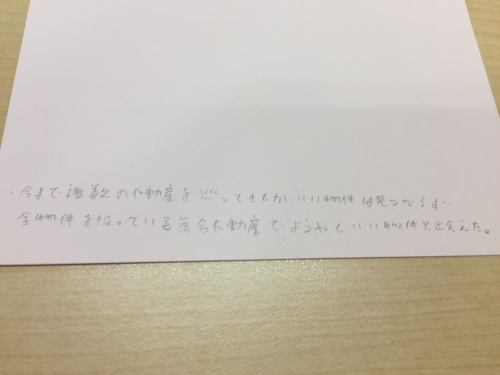 ・今まで複数の不動産を巡ってきたがいい物件は見つからず‥
全物件を扱っている落合不動産でようやくいい物件と出会えた。